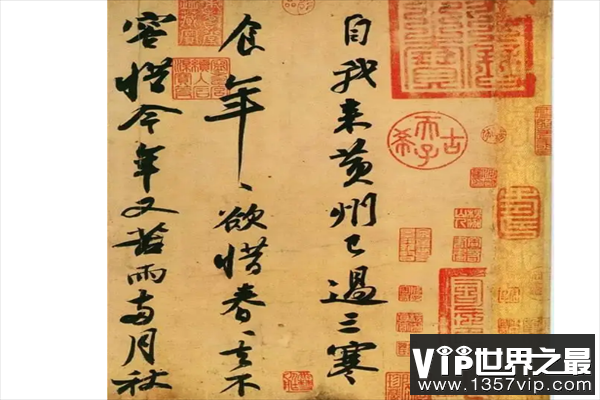 自我来黄州已過三寒
食年〻欲惜春〻去不
容惜今年又苦雨兩月秋
古希天子
VIP世界之最
www.1357vip.com